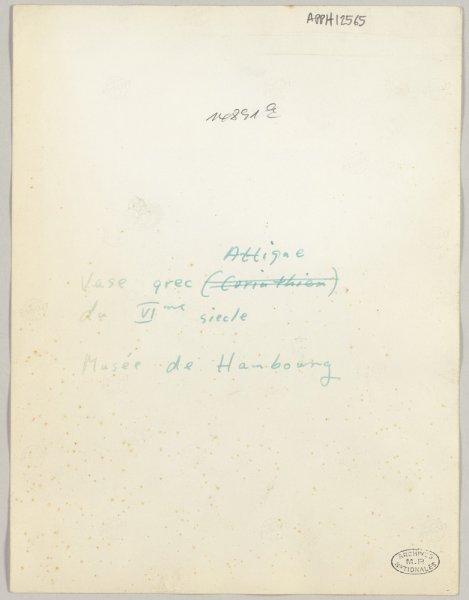 APPH12565
14891 a
Attique
Vase grec (Corinthien)
du VIme siecle
Musée de Hambourg
ARCHIVES
M.P.
NATIONALES